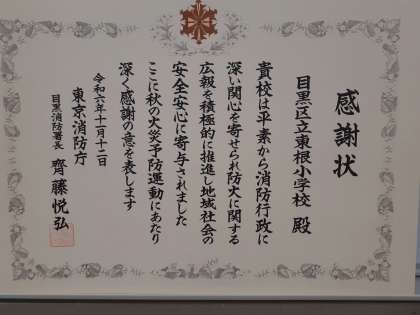 感謝状
目黒区立東根小学校 殿
貴校は平素から消防行政に
深い関心を寄せられ防火に関する
広報を積極的に推進し地域社会の
安全安心に寄与されました
ここに秋の火災予防運動にあたり
深く感謝の意を表します
令和六年十一月十二日
東京消防庁
目黒消防署長 齊藤悦弘